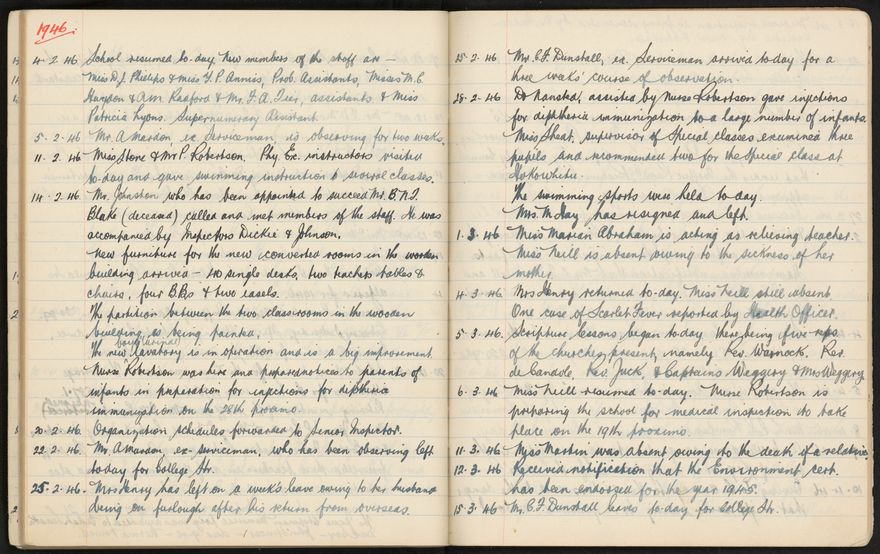 1946.
4. 2. 46. School resumed to-day. New members of the staff are —
Miss D. J. Phillips & Miss Y. P. Annis, Prob. Assistants, Misses M. C.
& A.M. Radford & Mr. F. A. assistants & Miss
Patricia Lyons. Supernumerary Assistant.
5. 2. 46 Mr. A. Mardon, ex Serviceman, is observing for two weeks.
11. 2. 46 Miss Stone & Mr P. Robertson. Phy. Ex. instructors visited
to-day and gave swimming instruction to several classes.
14. 2. 46. Mr. Johnston who has been appointed to succeed Mr. B. N. T.
Blake (deceased) called and met members of the staff. He was
accompanied by Inspectors Dickie & Johnson.
New furniture for the new converted rooms in the wooden
building arrived — 40 single desks, two teachers tables &
chairs, four B.Bs & two easels.
The partition between the two classrooms in the wooden
building is being painted.
The new boys (urinal) lavatory is in operation and is a big improvement.
Nurse Robertson was here and prepared notices to parents of
infants in preparation for injections for diptheria
immunization on the 28th proximo.
20. 2. 46. Organization schedules forwarded to Senior Inspector.
22. 2. 46. Mr. A Mardon, ex-serviceman, who has been observing left
to day for College Str.
25. 2. 46. Mrs Henry has left on a week's leave owing to her husband
being on furlough after his return from overseas.
25. 2. 46 Mr. C. F. Dunstall, ex. Serviceman arrived to-day for a
three weeks' course of observation.
28. 2. 46 Dr Ransted, assisted by Nurse Robertson gave injections
for diphtheria immunization to a large number of infants.
Miss Sheat, supervisor of Special classes examined three
pupils and recommended two for the Special class at
Hokowhitu.
The swimming sports were held to-day.
Mrs. M. Hay has resigned and left.
1. 3. 46 Miss Marian Abraham, is acting as relieving teacher.
Miss Neill is absent owing to the sickness of her
mother.
4. 3. 46 Mrs Henry returned to-day. Miss Neill still absent.
One case of Scarlet Fever reported by Health Officer.
5. 3. 46. Scripture lessons began to-day there being five reps
of the churches present, namely Rev. Warnock, Rev.
de Candole, Rev. Juck, & Captains Weggery & Mrs Weggery
6. 3. 46 Miss Neill resumed to-day. Nurse Robertson is
preparing the school for medical inspection to take
place on the 19th proximo.
11. 3. 46 Miss Martin was absent owing to the death of a relative.
12. 3. 46 Received notification that the Environment cert.
has been endorsed for the year 1945.
15. 3. 46 Mr. C. F. Dunstall leaves to-day for College Str.